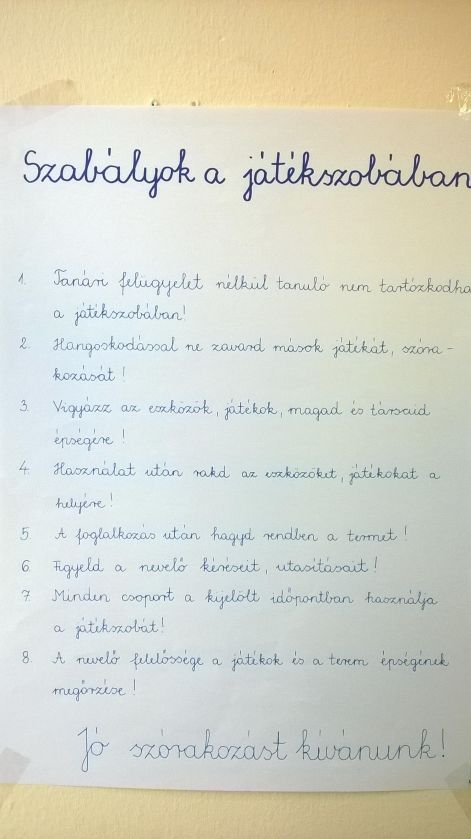 Szabályok a játékszobában
1. Tanári felügyelet nélkül tanuló nem tartózkodha
a játékszobában!
2. Hangoskodással ne zavard mások játékát, szóra-
kozását!
3. Vigyázz az eszközök, játékok, magad és társaid
épségére!
4. Használat után rakd az eszközöket, játékokat a
helyére!
5. A foglalkozás után hagyd rendben a termet!
6. Figyeld a nevelő kéréseit, utasításait!
7. Minden csoport a kijelölt időpontban használja
a játékszobát!
8. A nevelő felelőssége a játékok és a terem épségének
megőrzése!
Jó szórakozást kívánunk!